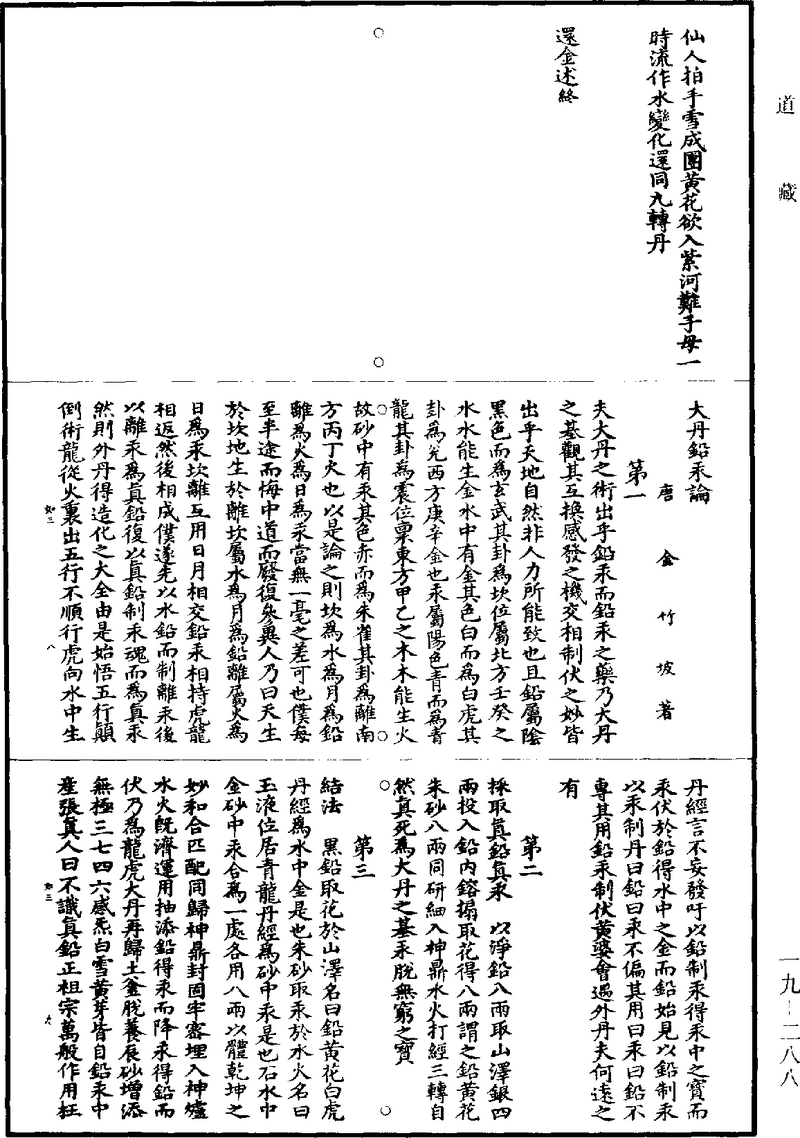 道藏
仙人拍手雪成團黃花欲入紫河難子母一
時流作水變化還同九轉丹
還金述終
大丹鉛汞論
唐金竹坡著
第一
夫大丹之術出乎鉛汞而鉛汞之藥乃大丹
之基觀其互換感發之機交相制伏之妙皆
出乎天地自然非人力所能致也且鉛屬陰
黑色而為玄武其卦為坎位屬北方壬癸之
水水能生金水中有金其色白而為白虎其
卦為兌西方庚辛金也汞屬陽色青而為青
龍其卦為震位稟東方甲乙之木木能生火
故砂中有汞其色赤而為朱雀其卦為離南
方丙丁火也以是論之則坎為水為月為鉛
離為火為日為汞當無一毫之差可也僕每
至半途而悔中道而廢復參異人乃曰天生
於坎地生於離坎屬水為月為鉛離屬火為
日為汞坎離互用日月相交鉛汞相持虎龍
相返然後相成僕遂先以水鉛而制離汞後
以離汞為真鉛復以真鉛制汞魂而為真汞
然則外丹得造化之大全由是始悟五行顛
倒術龍從火裏出五行不順行虎向水中生
如三
八
丹經言不妄發吁以鉛制汞得汞中之寶而
汞伏於鉛得水中之金而鉛始見以鉛制汞
以汞制丹曰鉛曰汞不偏其用曰汞曰鉛不
專其用鉛汞制伏黃婆會遇外丹夫何遠之
有
第二
採取真鉛真汞 以淨鉛八兩取山澤銀四
兩投入鉛內鎔搨取花得八兩謂之鉛黃花
朱砂八兩同研細入神鼎水火打經三轉自
然真死為大丹之基汞脫無窮之寶
第三
結法 黑鉛取花於山澤名曰鉛黃花白虎
丹經為水中金是也朱砂取汞於水火名曰
玉液位居青龍丹經為砂中汞是也石水中
金砂中汞合為一處各用八兩以體乾坤之
妙和合匹配同歸神鼎封固牢密埋入神爐
水火既濟運用抽添鉛得汞而降汞得鉛而
伏乃為龍虎大丹再歸土釜脫養辰砂增添
無極三七四六感炁白雪黃芽皆自鉛汞中
產張真人曰不識真鉛正祖宗萬般作用枉
如三
九
一九-二八八